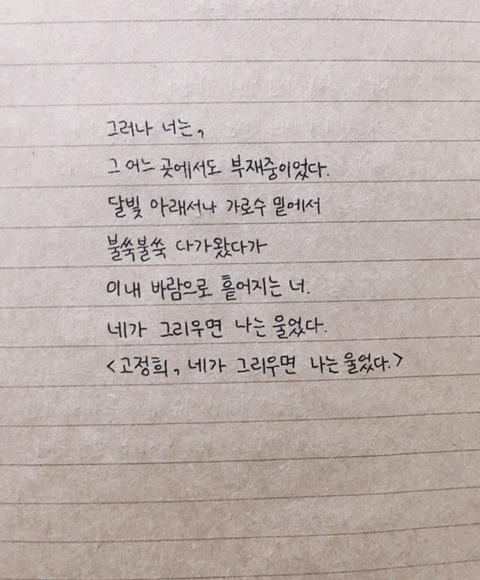 그러나 너는,
그 어느 곳에서도 부재중이었다.
달빛 아래서나 가로수 밑에서
불쑥불쑥 다가왔다가
이내 바람으로 흩어지는 너.
네가 그리우면 나는 울었다.
<고정희, 네가 그리우면 나는 울었다.>